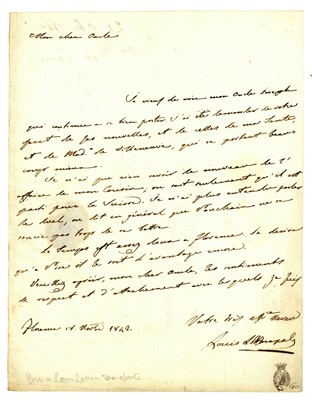 Mon cher Oncle
Je viens de voir mon Oncle Joseph
qui continue a bien porter. J'ai été demander de votre
part de ses nouvelles, et de celles de ma Tante,
et de Mad.e de Villeneuve, qui se portent beau
coup mieux.
Je n'ai que rien de nouveau de l'
affaire de mon Cousin, on dit seulement qu'il est
parti pour la Suisse. Je n'ai plus entendu parler
du duel, on dit en général que
pas trop de se battre.
Le temps est assez doux a Florence. Je desire
qu'a il le soit d'avantage encore.
Veuillez agréer, mon cher Oncle, les sentiments
de respect et d'attachement avec lesquels je suis
Votre aff.né Neveu
Florence 18 1842.
Louis L.